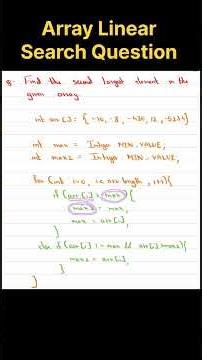 Array Linear
Search Question
8. Find the second largest element in the
given array.
int arr[] = {-10, -8, -430, 12, -523};
int max = Integer MIN_VALUE;
int max2 = Integer MIN_VALUE;
for (int i=0, i< arr.length, i++){
if (arr[i] > max) {
max2 = max,
max = arr[i],
}
else if (arr[i] != max && arr[i]>max2){
max2 = arr[i];
}
}